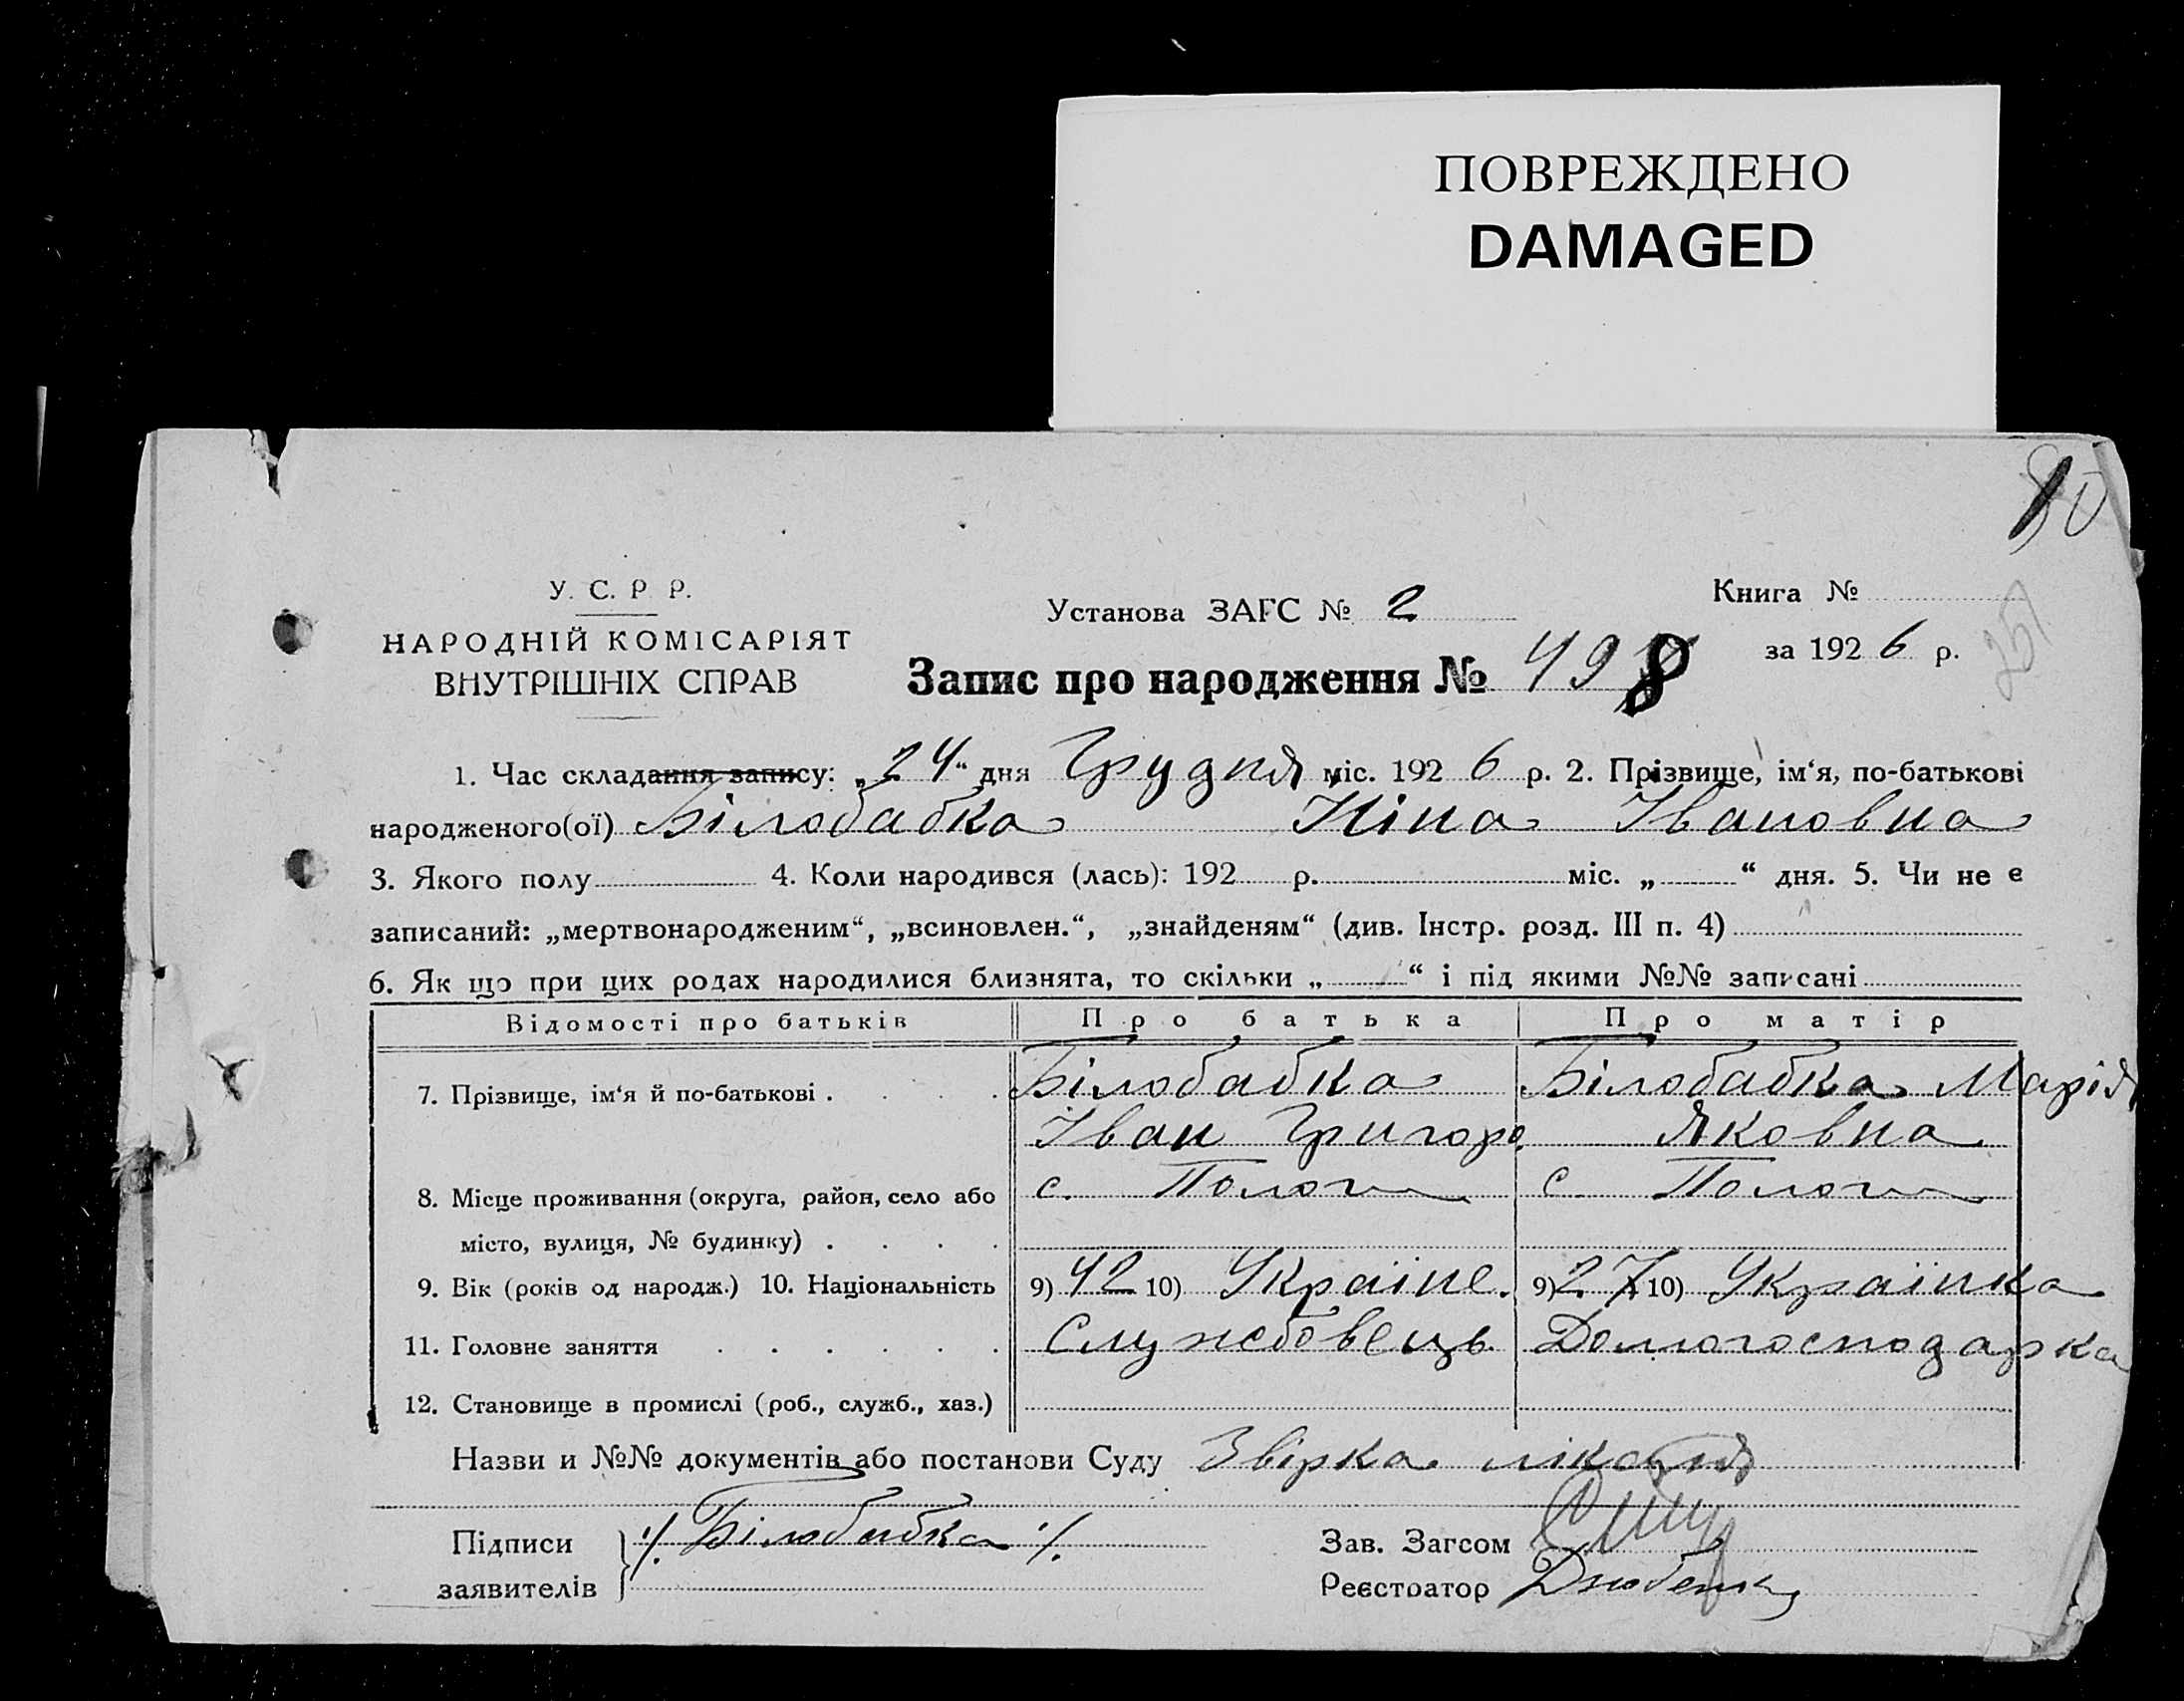 ПОВРЕЖДЕНО
DAMAGED
80
У. С. Р Р.
НАРОДНІЙ КОМІСАРІЯТ
ВНУТРІШНІХ СПРАВ
Установа ЗАГС № 2
Запис про народження № 498
Книга №
за 1926 р.
1. Час складання запису: „24“ дня Грудня міс. 1926 р. 2. Прізвище, ім‘я, по-батькові
народженого(ої) Білобабка Ніна Івановна
3. Якого полу 4. Коли народився (лась): 192 р. міс. „ “ дня. 5. Чи не є
записаний: „мертвонародженим“, „всиновлен.“, „знайденям“ (див. Інстр. розд. III п. 4)
6. Як що при цих родах народилися близнята, то скільки „ “ і під якими №№ записані
Відомості про батьків Про батька Про матір
7. Прізвище, ім‘я й по-батькові . . . . Білобабка Білобабка Марія
Іван Григоро. Яковна
8. Місце проживання (округа, район, село або с. Пологи с Пологи
місто, вулиця, № будинку) . . . .
9. Вік (років од народж.) 10. Національність 9) 42 10) Українe. 9) 27 10) Українка
11. Головне заняття . . . . . . Служебовець Домогосподарка
12. Становище в промислі (роб., служб., хаз.)
Назви и №№ документів або постанови Суду Звірка лікаря
Підписи ·/. Білобабка ·/.
заявителів
Зав. Загсом
Реєстратор